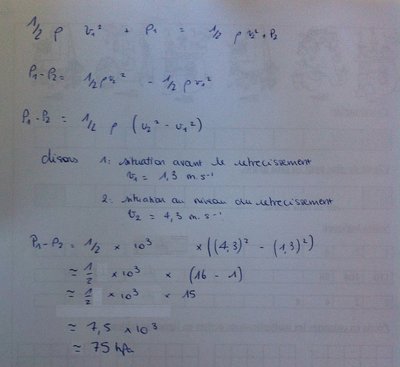 1/2 ρ v₁² + P₁ = 1/2 ρ v₂² + P₂
P₁-P₂ = 1/2 ρ v₂² - 1/2 ρ v₁²
P₁-P₂ = 1/2 ρ (v₂² - v₁²)
disons 1: situation avant le retrecissement
v₁ = 1,3 m.s⁻¹
2: situation au niveau du retrecissement
v₂ = 4,3 m.s⁻¹
P₁-P₂ = 1/2 × 10³ × ((4,3)² - (1,3)²)
≈ 1/2 × 10³ × (16 - 1)
≈ 1/2 × 10³ × 15
≈ 7,5 × 10³
≈ 75 hPa